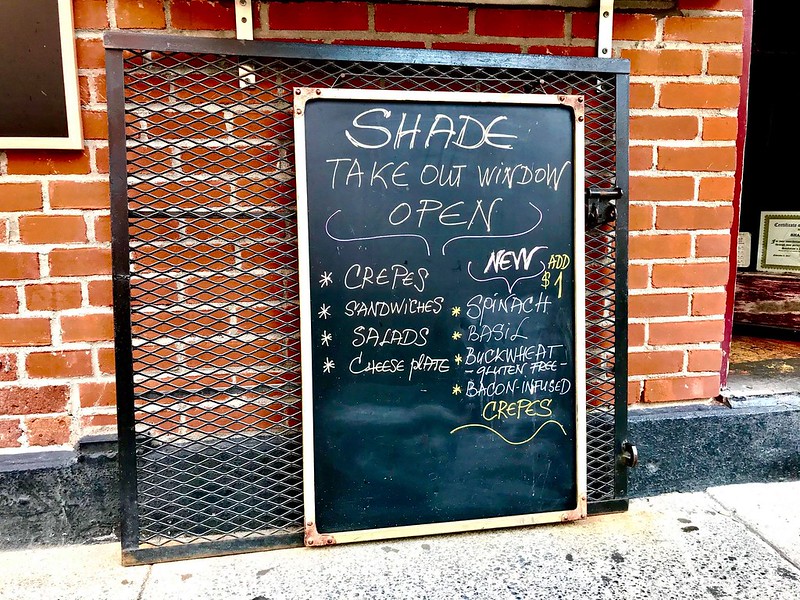 SHADE
TAKE OUT WINDOW
OPEN
* CREPES
* SANDWICHES
* SALADS
* CHEESE PLATE
NEW
ADD
$1
* SPINACH
* BASIL
* BUCKWHEAT
- GLUTEN FREE -
* BACON-INFUSED
CREPES
Certificate